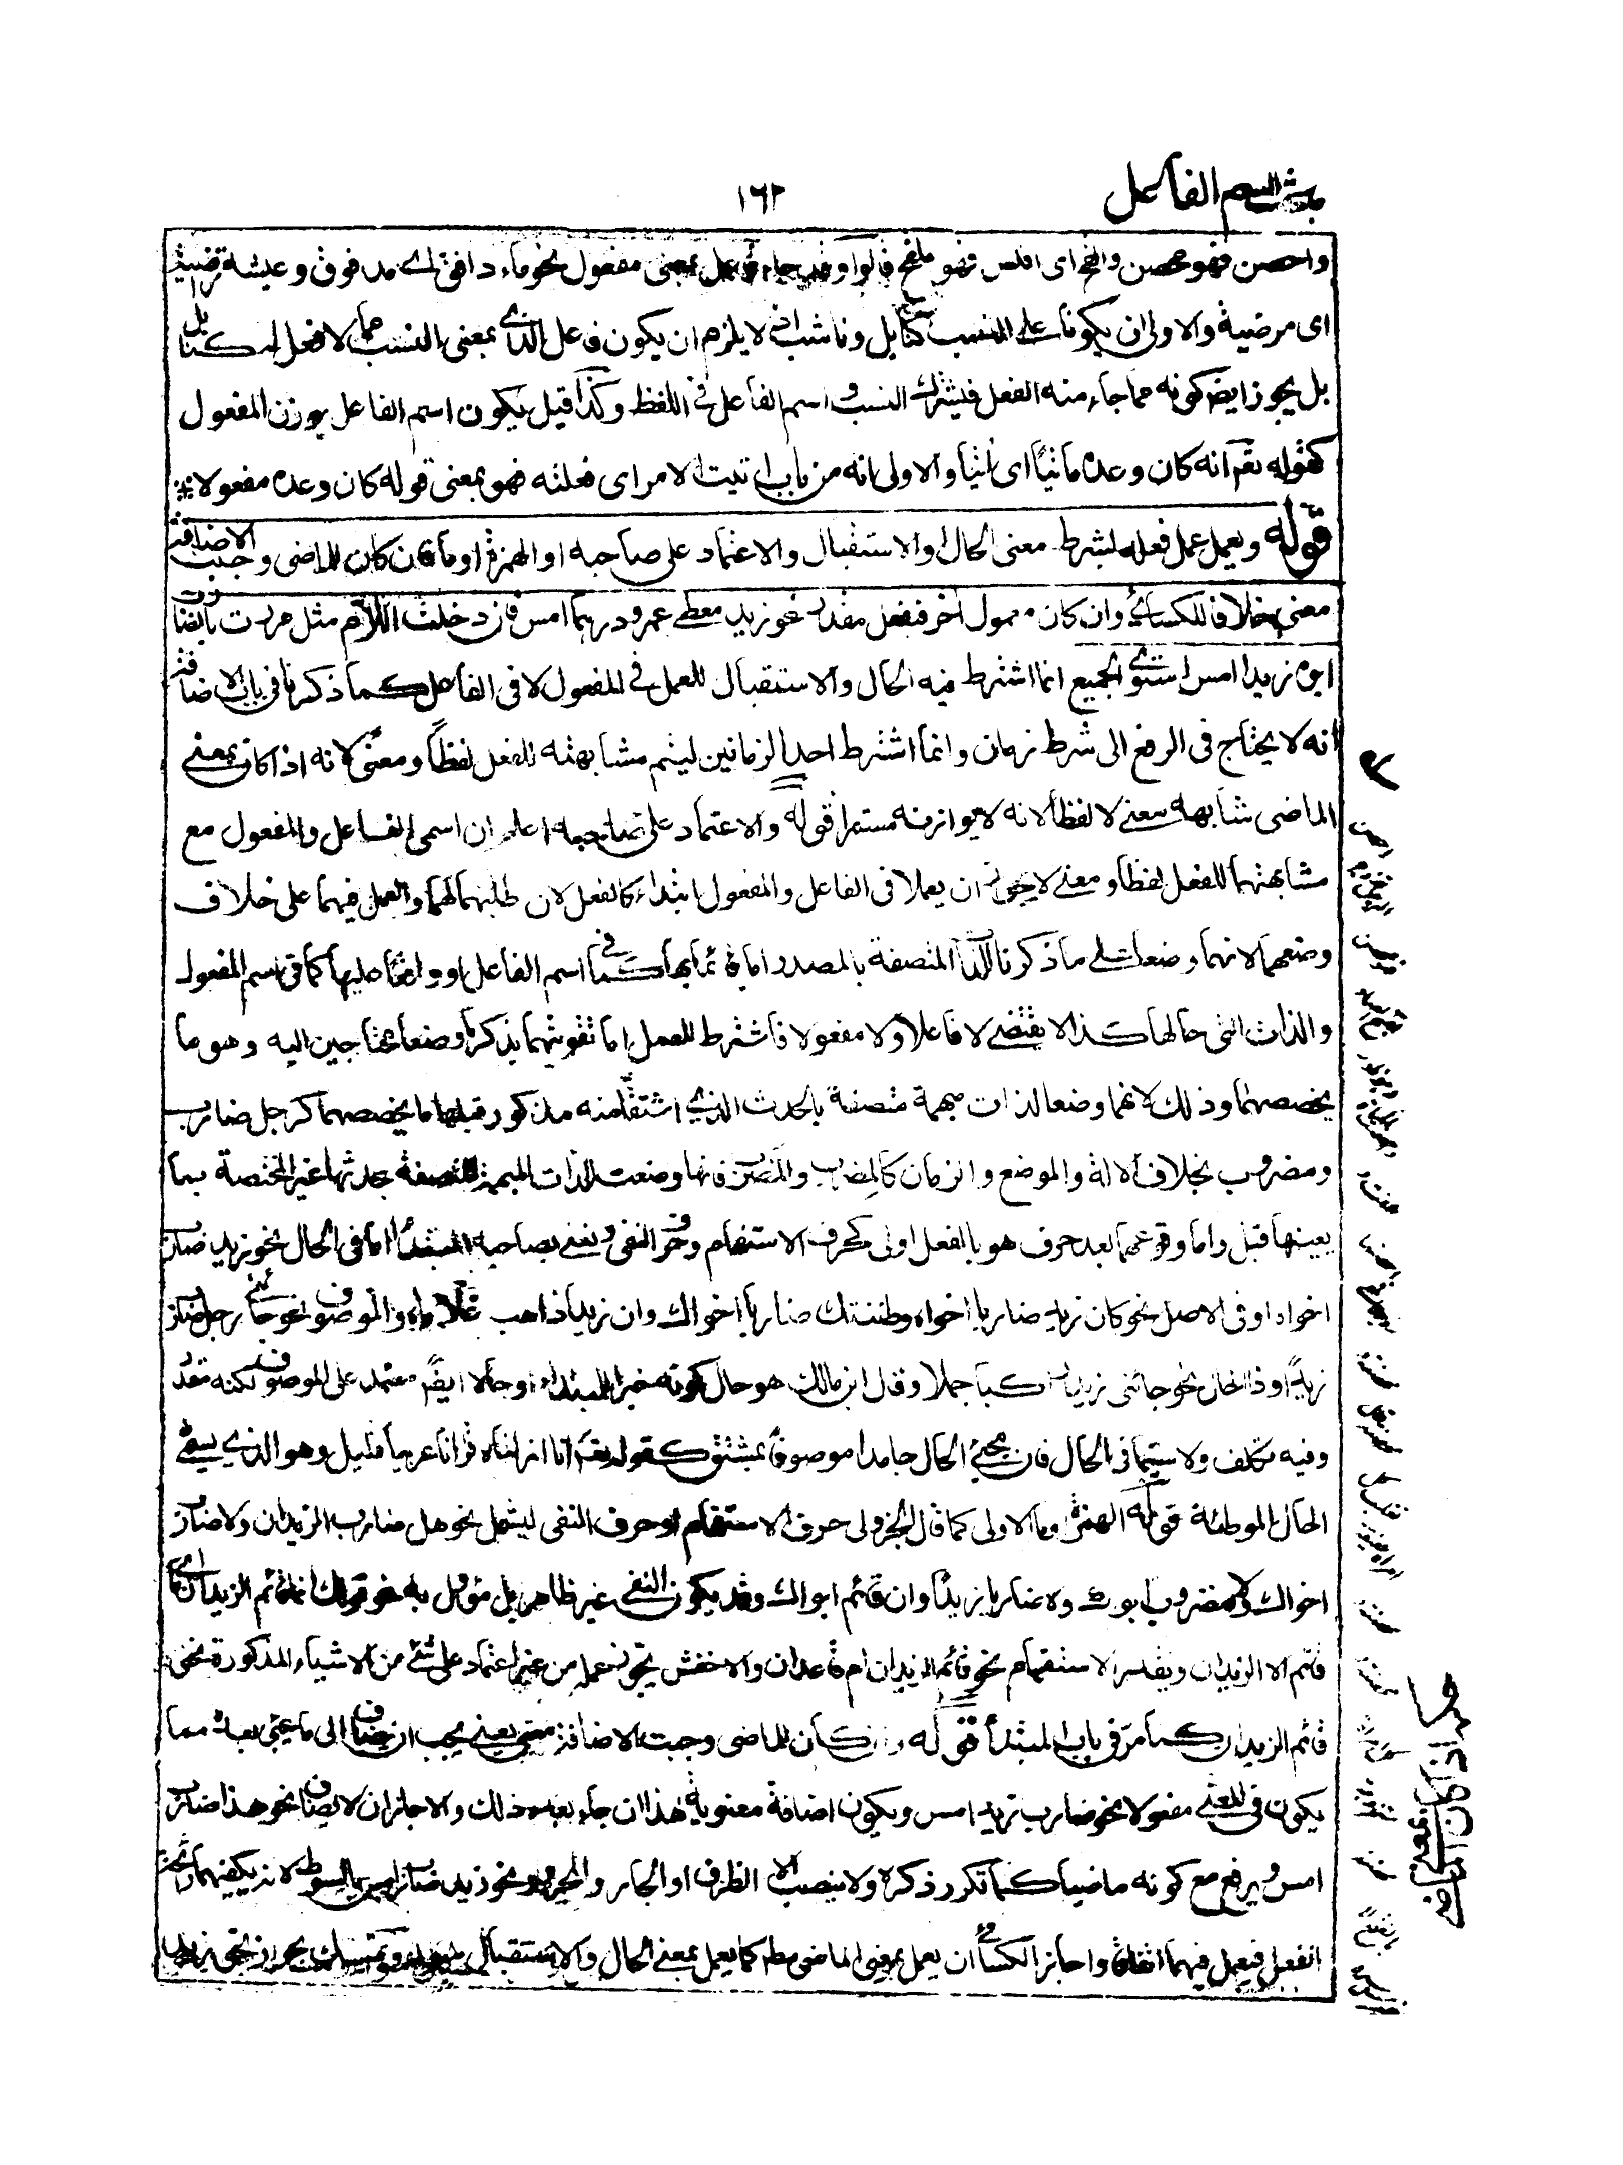 بحث اسم الفاعل
١٦٢
واحصن فهو محصن والفج اى افلس فهو ملفج قالوا وقد جاء فاعل بمعنى مفعول نحو ماء دافق اى مدفوق وعيشة راضية
اى مرضية والاولى ان يكونا على النسب كنابل وناشب اذ لا يلزم ان يكون فاعل الذى بمعنى النسب مما لا فعل له كنابل
بل يجوز ايضا كونه مما جاء منه الفعل فيشترك النسب و اسم الفاعل فى اللفظ وكذا قيل يكون اسم الفاعل بوزن المفعول
كقوله تعم انه كان وعده ماتيا اى اتيا والاولى انه من باب اتيت الامر اى فعلته فهو بمعنى قوله كان وعده مفعولا
قوله ويعمل عمل فعله بشرط معنى الحال او الاستقبال والاعتماد على صاحبه او الهمزة او ما فان كان للماضى وجبت الاضافة
معنى خلافا للكسائى وان كان معمول آخر فبفعل مقدر نحو زيد معطى عمرو درهما امس فان دخلت اللام مثل مررت بالضارب
ابوه زيدا امس استوى الجميع انما اشترط فيه الحال والاستقبال للعمل فى المفعول لا فى الفاعل كما ذكرنا فى باب الاضافة
انه لا يحتاج فى الرفع الى شرط زمان وانما اشترط احد الزمانين ليتم مشابهته للفعل لفظا ومعنى لانه اذا كان بمعنى
الماضى شابهه معنى لا لفظا لانه لا يوازنه مستمرا قوله والاعتماد على صاحبه اعلم ان اسمى الفاعل والمفعول مع
مشابهتهما للفعل لفظا و معنى لا يجوز ان يعملا فى الفاعل والمفعول ابتداء كالفعل لان طلبهما لهما والعمل فيهما على خلاف
وضعهما لانهما وضعا على ما ذكرنا للذات المتصفة بالمصدر اما قائما بها كما فى اسم الفاعل او واقعا عليها كما فى اسم المفعول
والذات التى حالها كذا لا يقتضى لا فاعلا ولا مفعولا فاشترط للعمل اما تقويتهما بذكر ما وضعا محتاجين اليه وهو ما
يخصصهما وذلك لانهما وضعا لذات مبهمة متصفة بالحدث الذى اشتقا منه مذكور قبلهما ما يخصصهما كرجل ضارب
ومضروب بخلاف الالة والموضع والزمان كالمضرب والمضرب فانها وضعت للذات المبهمة المتصفة بحدثها غير المختصة بما
يعينها قبل واما وقوعهما بعد حرف هو بالفعل اولى كحرف الاستفهام وحرف النفى ونعنى بصاحبه المبتدأ اما فى الحال نحو زيد ضارب
اخواه او فى الاصل نحو كان زيد ضاربا اخواه وظننتك ضاربا اخواك وان زيدا ذاهب غلاماه والموصوف نحو جائنى رجل ضارب
زيدا او ذا الحال نحو جائنى زيد راكبا جملا وقال ابن مالك هو حال كونه خبرا للمبتداء او حالا ايضا معتمد على الموصوف لكنه مقدر
وفيه تكلف ولا سيما فى الحال فان مجئ الحال جامدا موصوفا بمشتق كقوله تعم انا انزلناه قرانا عربيا قليل وهو الذى يسمى
الحال الموطئة قوله الهمزة وما الاولى كما قال الجزولى حرف الاستفهام او حرف النفى ليشمل نحو هل ضارب الزيدان ولا ضارب
اخواك ولا مضروب ابوك ولا ضاربا زيدا وان قائم ابواك وقد يكون النفى غير ظاهر بل مؤول به نحو قولك انما قائم الزيدان اى ما
قائم الا الزيدان ويقدر الاستفهام نحو قائم الزيدان ام قاعدان والاخفش يجوز عمله من غير اعتماد على شئ من الاشياء المذكورة نحو
قائم الزيدان كما مر فى باب المبتدأ قوله وان كان للماضى وجبت الاضافة معنى يعنى يجب ان يضاف الى ما يجئ بعده مما
يكون فى المعنى مفعولا نحو ضارب زيد امس ويكون اضافة معنوية هذا ان جاء بعده ذلك والا جاز ان لا يضاف نحو هذا ضارب
امس ويرفع مع كونه ماضيا كما تكرر ذكره ولا ينصب الا الظرف او الجار والمجرور نحو زيد ضارب امس بالسوط لانه يكفيهما رائحة
الفعل فيعمل فيهما اتفاقا واجاز الكسائى ان يعمل بمعنى الماضى مطم كما يعمل بمعنى الحال والاستقبال وتمسك بجواز نحو زيد